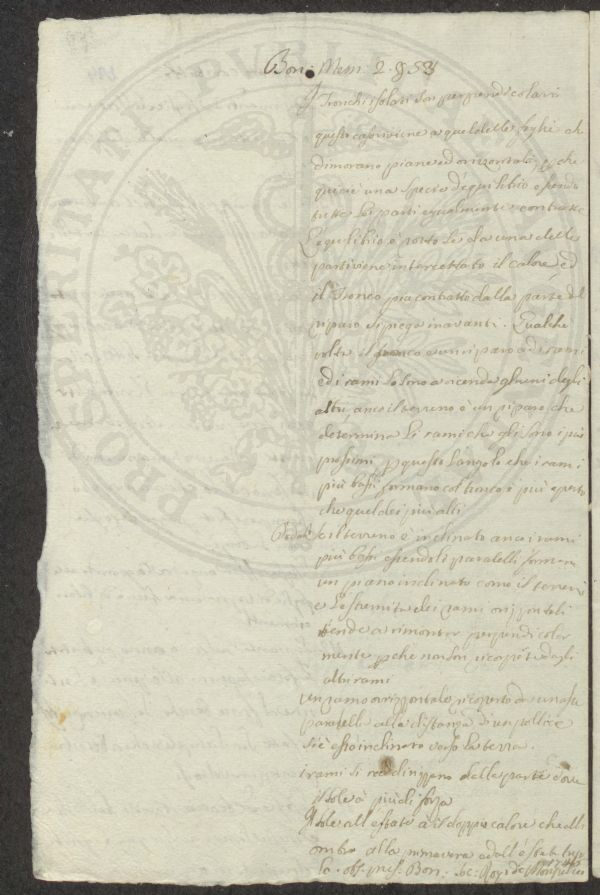 Bon: Mem: 2. 953
I Tronchi isolati son perpendicolari
questo caso viene a quel delle foglie che
dimorano piane ed orizzontali, perche
quivi è una specie d'equilibrio essendo
tutte le parti egualmente contratte
L'equilibrio è rotto se da una delle
parti viene intercettato il calore, ed
il Tronco piu contratto dalla parte del
riparo si piega in avanti. Qualche
volta il tronco a un riparo di rami
ed i rami lo sono a vicenda gli uni degli
altri anco il terreno è un riparo che
determina li rami che gli sono i più
prossimi p questo l'angolo che i rami
più bassi formano col tronco è più aperto
che quel dei più alti
se il terreno è inclinato anco i rami
più bassi essendoli paralelli formano
un piano inclinato come il terreno
e l'estremità dei rami orizzontali
tende a rimontar perpendicolar
mente pche non son ricoperti dagli
altri rami
un ramo orizzontale ricoperto da una
paralelli alla distanza di un pollice
si è esso inclinato verso la terra.
i rami si raddirizzano dalla parte dove
il sole à più di forza
Il sole all'estate à il doppio calore che all
ombra alla primavera e dall'estate
obs. Bon: Roy. de Monpellier
PROSPERITATI PVBLICAE